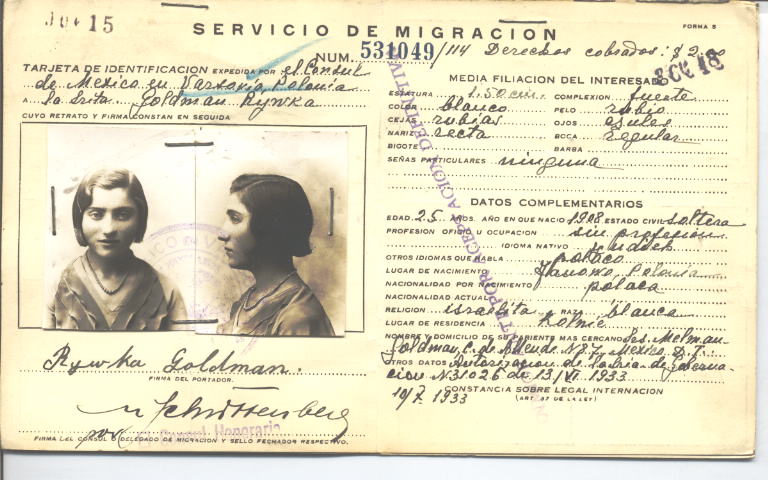 JUL 15
SERVICIO DE MIGRACION
FORMA 5
NUM. 531049/114 Derechos cobrados: $2.00
TARJETA DE IDENTIFICACION EXPEDIDA POR el Consul
de Mexico en Varsovia, Polonia
A la Srita. Goldman Rywka
CUYO RETRATO Y FIRMA CONSTAN EN SEGUIDA
Rywka Goldman.
FIRMA DEL PORTADOR.
FIRMA DEL CONSUL O DELEGADO DE MIGRACION Y SELLO FECHADOR RESPECTIVO.
MEDIA FILIACION DEL INTERESADO
ESTATURA 1.50 cm. COMPLEXION fuerte
COLOR blanco PELO rubio
CEJAS rubias OJOS asules
NARIZ recta BOCA regular
BIGOTE BARBA
SEÑAS PARTICULARES ninguna
DATOS COMPLEMENTARIOS
EDAD 25 AÑOS. AÑO EN QUE NACIO 1908 ESTADO CIVIL soltera
PROFESION OFICIO U OCUPACION sin profesion
IDIOMA NATIVO
OTROS IDIOMAS QUE HABLA polaco
LUGAR DE NACIMIENTO Polonia
NACIONALIDAD POR NACIMIENTO polaca
NACIONALIDAD ACTUAL
RELIGION israelita RAZA blanca
LUGAR DE RESIDENCIA
NOMBRE Y DOMICILIO DE SU PARIENTE MAS CERCANO Srs. Melman
Goldman, C. de Allende N 87, Mexico D.F.
OTROS DATOS Autorizacion de la Sria de Goberna-
cion N 31026 de 13/VI 1933
10/7 1933
CONSTANCIA SOBRE LEGAL INTERNACION
(ART. 57 DE LA LEY)